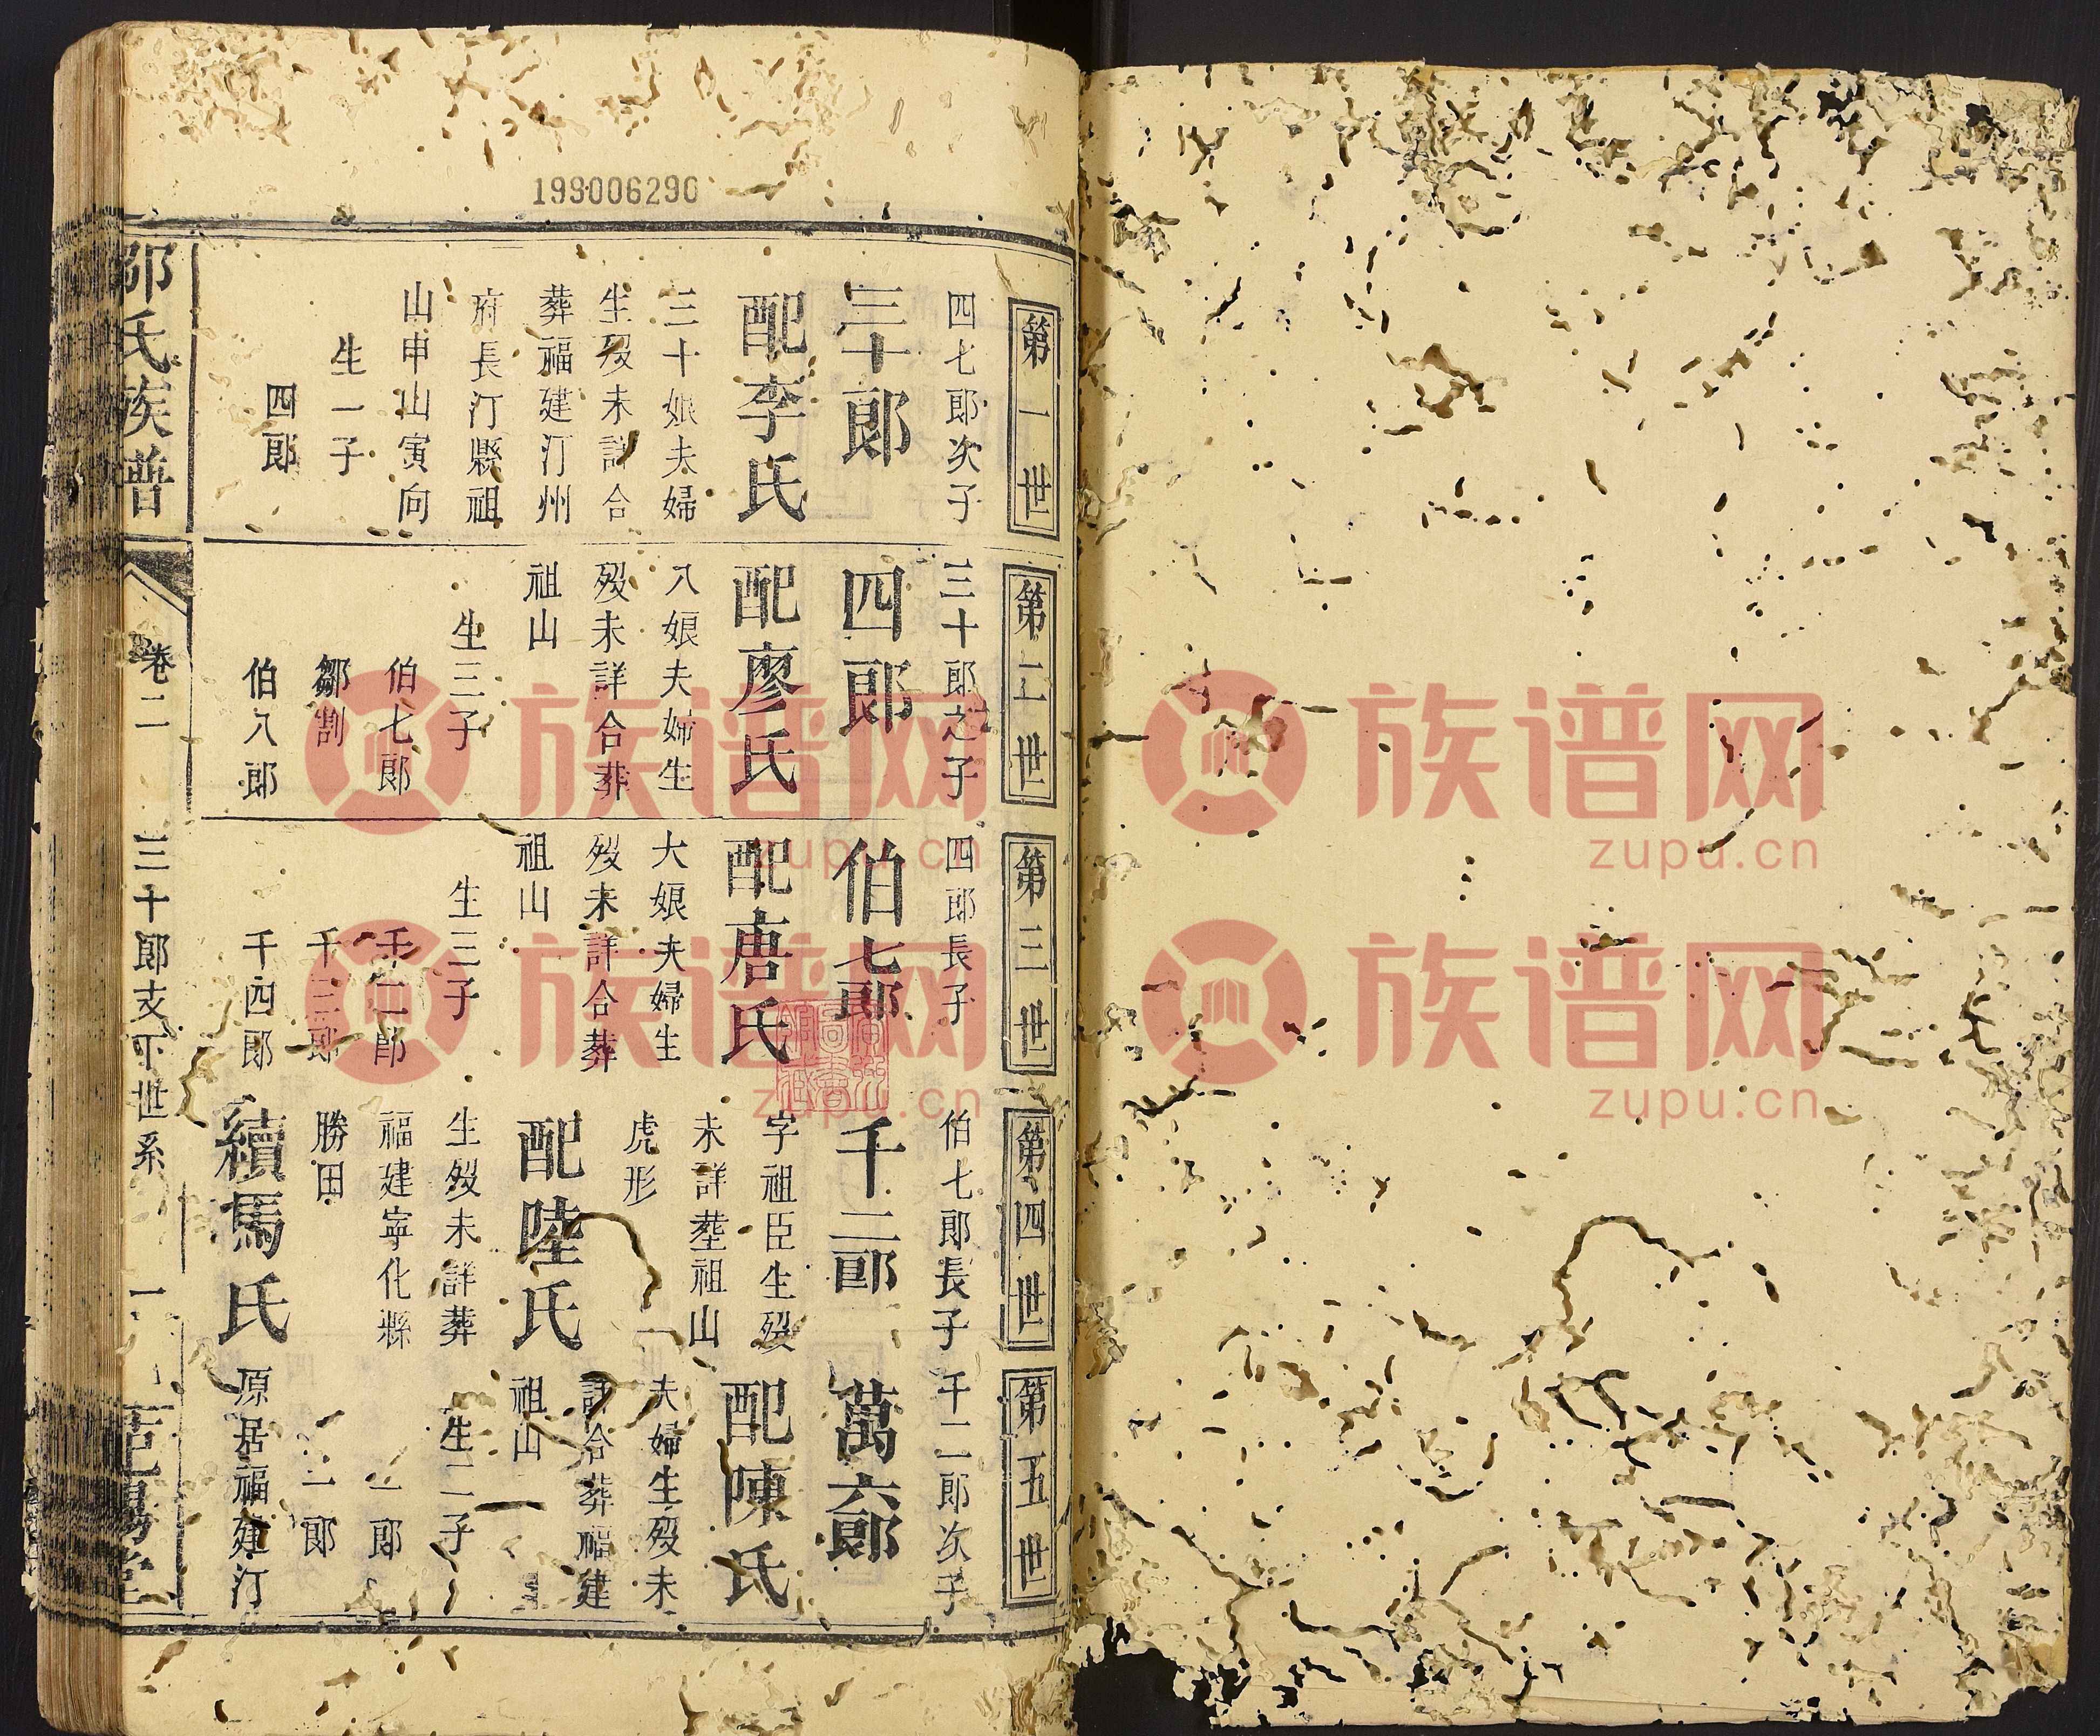 199006290
第一世
四七郎次子
三十郎
配李氏
三十娘夫婦
生歿未詳合
葬福建汀州
府長汀縣祖
山申山寅向
生一子
四郎
第二世
三十郎之子
四郎
配廖氏
八娘夫婦生
歿未詳合葬
祖山
生三子
伯七郎
鄒割
伯八郎
第三世
四郎長子
伯七郎
配唐氏
大娘夫婦生
歿未詳合葬
祖山
生三子
千二郎
千三郎
千四郎
第四世
伯七郎長子
千二郎
字祖臣生歿
未詳塟祖山
虎形
配陸氏
生歿未詳葬
福建寧化縣
勝田
續馬氏
第五世
千二郎次子
萬六郎
配陳氏
夫婦生歿未
詳合葬福建
祖山
生二子
一郎
二郎
原居福建汀
邹氏族譜
卷二
三十郎支下世系
一
族谱网
zupu.cn
族谱网
zupu.cn
族谱网
zupu.cn
族谱网
zupu.cn